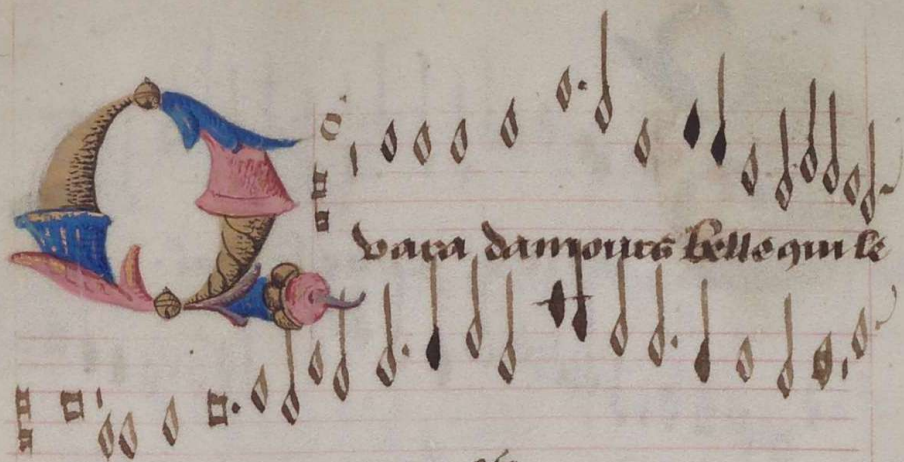 Q
vara damours belle qui le